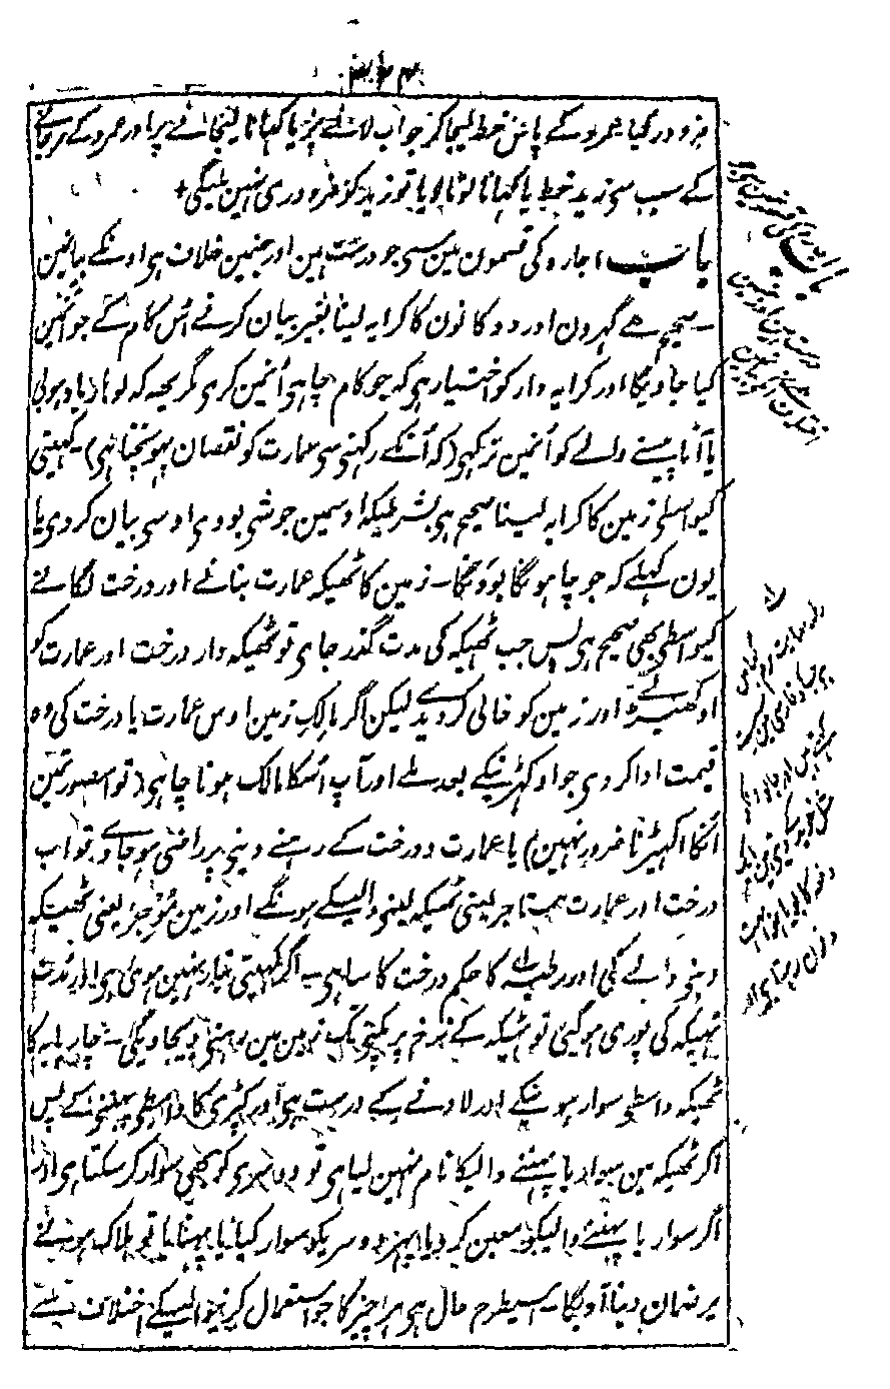 مزدور کیا عمرو کے پاس خط لیجا کر جواب لانے پر یا کہانا لیجانے پر اور عمرو کے مرجانے
کے سبب سی زید خط یا کہانا لوٹا لایا تو زید کو مزدوری نہین ملیگی +
باب اجارہ کی قسمون مین سی جو درست ہین اور جنمین خلاف ہی اونکے بیانمین
صحیح ہے گہرون اور دوکانون کا کرایہ لینا بغیر بیان کرنے اُس کام کے جو اُنمین
کیا جاویگا اور کرایہ دار کو اختیار ہی کہ جو کام چاہی اُنمین کری مگر یہہ کہ لوہار یا دہوبی
یا آٹا پیسنے والے کو اُنمین نرکہی (کہ اُنکے رکہنی سی عمارت کو نقصان پہونچتا ہی) کہیتی
کیواسطی زمین کا کرایہ لینا صحیح ہی بشرطیکہ اوسمین جو شی بووی اوسی بیان کردی یا
یون کہلے کہ جو چاہونگا بوؤنگا ۔ زمین کا ٹھیکہ عمارت بنانے اور درخت لگانے
کیواسطی بھی صحیح ہی پس جب ٹھیکہ کی مدت گذر جای تو ٹھیکہ دار درخت اور عمارت کو
اوکھیڑ لے اور زمین کو خالی کردے لیکن اگر مالک زمین اوس عمارت یا درخت کی وہ
قیمت ادا کردی جو اوکہڑنیکے بعد ملے اور آپ اُسکا مالک ہونا چاہی (تو اسصورتمین
اُنکا اکہیڑنا ضرور نہین) یا عمارت و درخت کے رہنے دینی پر راضی ہوجاوے تو اب
درخت اور عمارت مستاجر یعنی ٹھیکہ لینی والیکے ہونگے اور زمین مُوجر یعنی ٹھیکہ
دینی والے کی اور رطبہ کا حکم درخت کا سا ہی ۔ اگر کہیتی تیار نہین ہوئی ہی اور مدت
ٹھیکہ کی پوری ہوگئی تو ٹھیکہ کے نرخ پر پکنی تک زمین مین رہنی دیجاویگی ۔ چارپایہ کا
ٹھیکہ واسطی سوار ہونیکے اور لادنے کے درست ہی اور کپڑی کا واسطی پہننے کے پس
اگر ٹھیکہ مین سوار یا پہننے والیکا نام نہین لیا ہی تو دوسری کو بھی سوار کرسکتا ہی اور
اگر سوار یا پہننے والیکو معین کردیا پہر دوسریکو سوار کیا یا پہنایا تو ہلاک ہونے
پر ضمان دینا آویگا ۔ اسیطرح حال ہی ہر اچیز کا جو استعمال کرنیوالیکے اختلاف سے